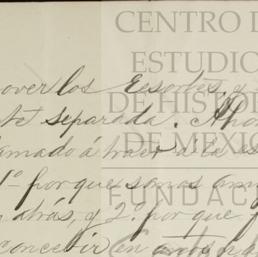 CENTRO D
ESTUDIO
DE HISTO
DE MEXIC
FUNDAC
over los Resortes, y
te separada. Aho
lamado á hacer á la es
1º porque somos am
atrás, y 2º. por que
concebir en